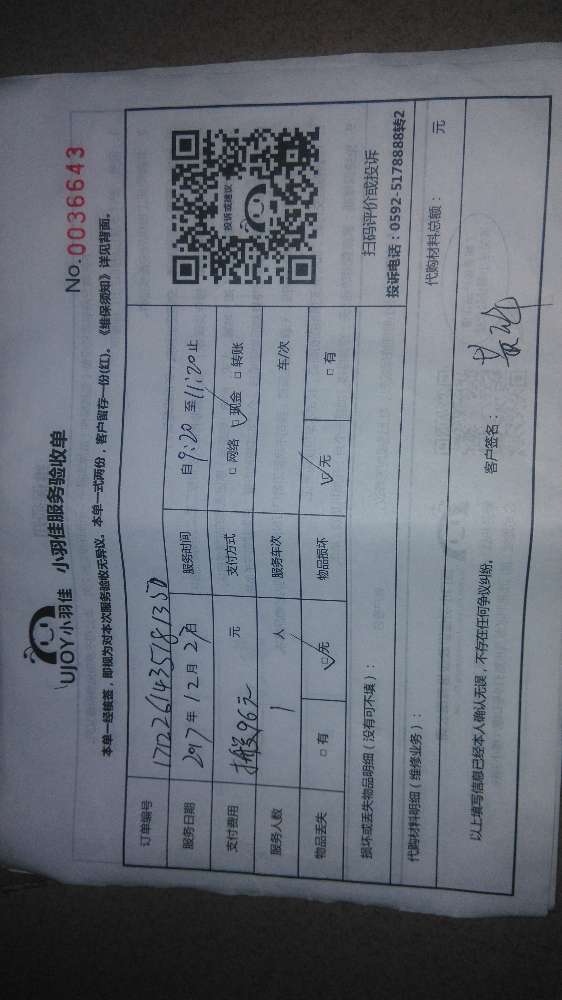 UJOY小羽佳 小羽佳服务验收单
No. 0036643
本单一经核签，即视为对本次服务验收无异议。本单一式两份，客户留存一份(红)。《维保须知》详见背面。
订单编号 171226143518135D
服务日期 2017年12月27日 服务时间 自9:20至11:20止
支付费用 96元 元 支付方式 □网络 ☑现金 □转账
服务人数 1 人 服务车次 车/次
物品丢失 □有 ☑无 物品损坏 ☑无 □有
投诉或建议
扫码评价或投诉
投诉电话：0592-5178888转2
损坏或丢失物品明细（没有可不填）：
代购材料明细（维修业务）： 代购材料总额： 元
以上填写信息已经本人确认无误，不存在任何争议纠纷。 客户签名：